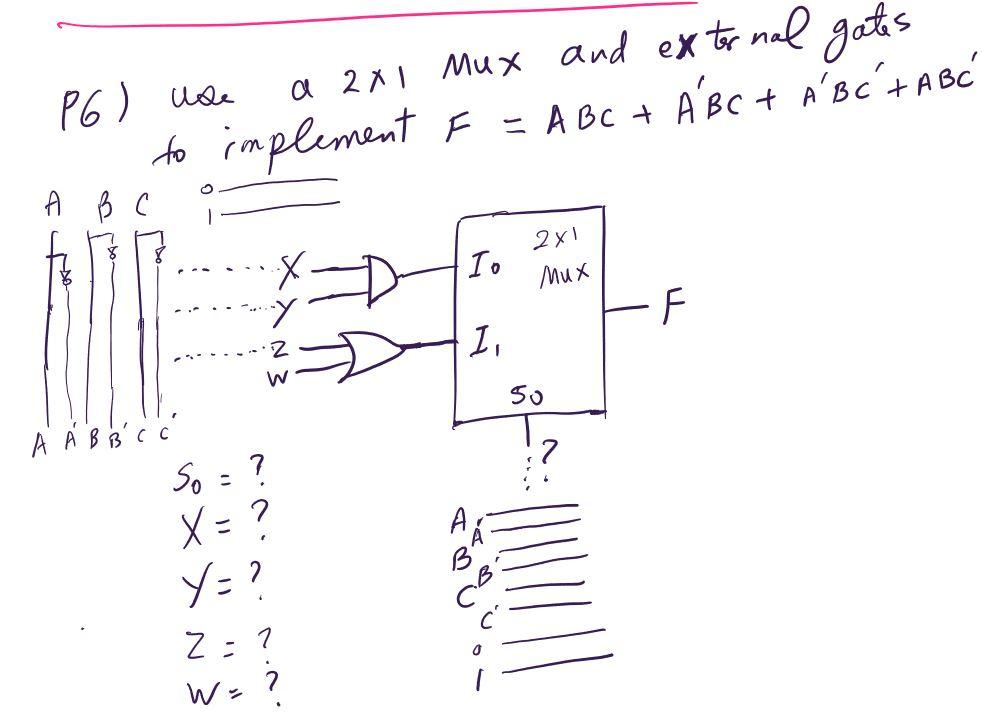 P6) use a 2x1 Mux and external gates
to implement F = ABC + A'BC + A'BC' + ABC'
A B C
0
1
X
Y
Z
W
I0
I1
2x1
Mux
S0
F
A A' B B' C C'
?
?
S0 = ?
X = ?
Y = ?
Z = ?
W = ?
A
A'
B
B'
C
C'
0
1